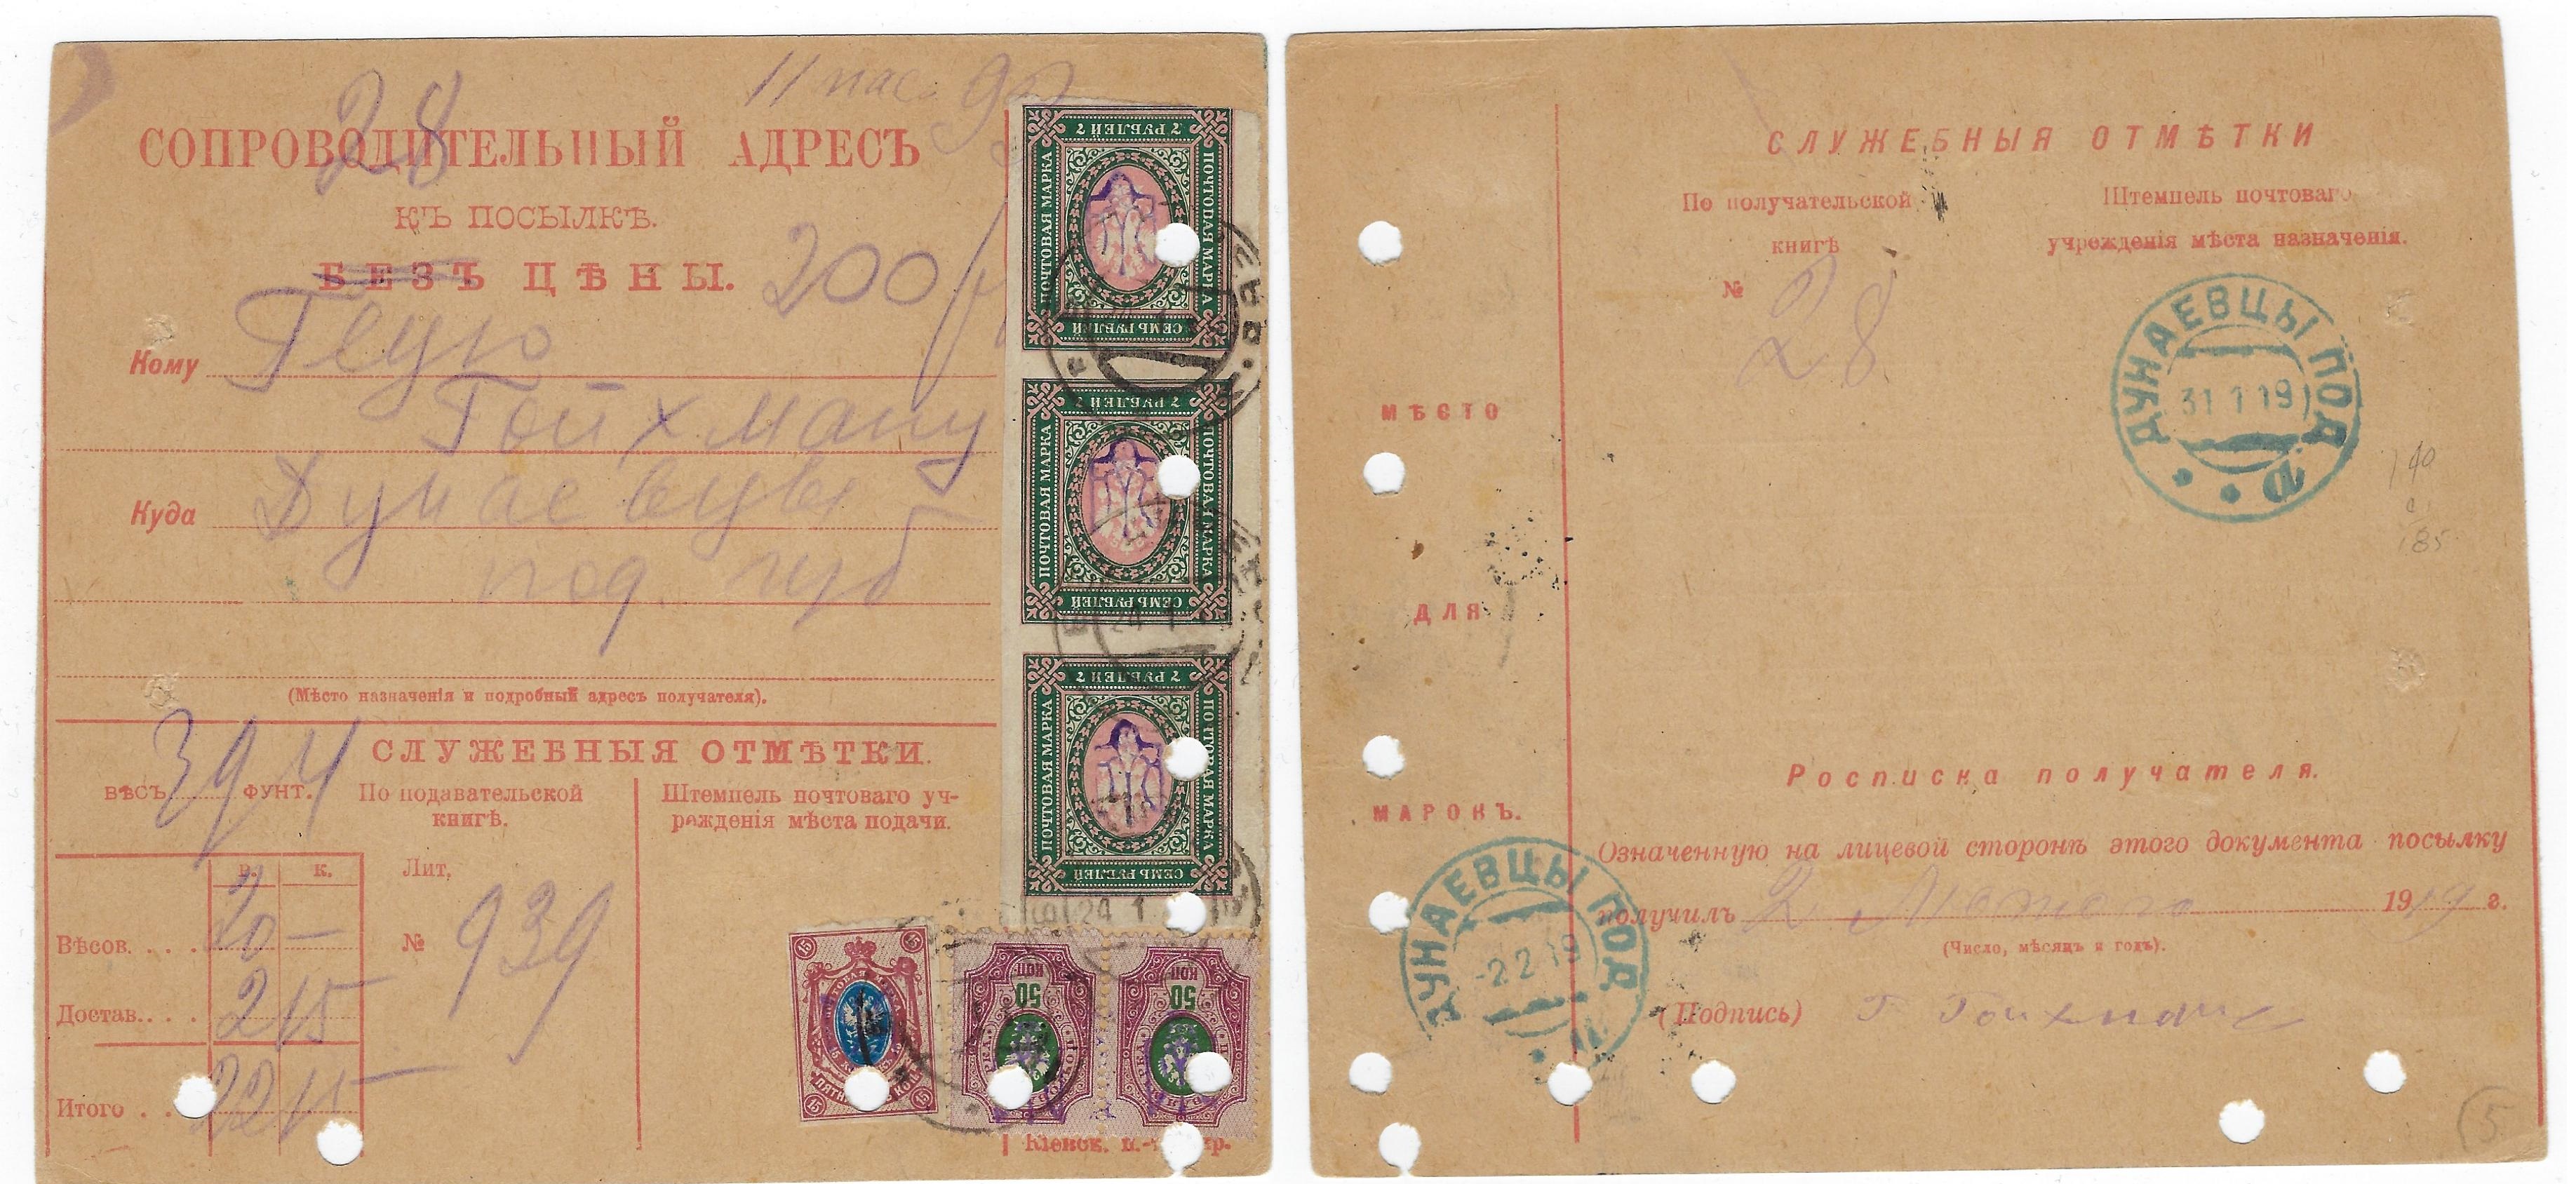 28
СОПРОВОДИТЕЛЬНЫЙ АДРЕСЪ
КЪ ПОСЫЛКѢ.
БЕЗЪ ЦѢНЫ. 200
Кому
Гойхману
Куда Дунаевцы
под. губ
(Мѣсто назначенія и подробный адресъ получателя).
СЛУЖЕБНЫЯ ОТМѢТКИ.
ВѢСЪ ФУНТ.
По подавательской
книгѣ.
Штемпель почтоваго уч-
режденія мѣста подачи.
Р. К.
Лит,
Вѣсов. . . . 20 —
№ 939
Достав. . . . 2 15
Итого . . 22 15
7 РУБЛЕЙ 7
ПОЧТОВАЯ МАРКА
ПОЧТОВАЯ МАРКА
СЕМЬ РУБЛЕЙ
7 РУБЛЕЙ 7
ПОЧТОВАЯ МАРКА
ПОЧТОВАЯ МАРКА
СЕМЬ РУБЛЕЙ
24 1
7 РУБЛЕЙ 7
ПОЧТОВАЯ МАРКА
ПОЧТОВАЯ МАРКА
СЕМЬ РУБЛЕЙ
24 1
15 15
15 15
50 КОП
50 КОП
Кіевск.
СЛУЖЕБНЫЯ ОТМѢТКИ
По получательской
книгѣ
№ 28
Штемпель почтоваго
учрежденія мѣста назначенія.
ДУНАЕВЦЫ ПОД
31 1 19
140
185
МѢСТО
ДЛЯ
МАРОКЪ.
Росписка получателя.
Означенную на лицевой сторонѣ этого документа посылку
получилъ 2 Лютого 1919 г.
(Число, мѣсяцъ и годъ).
(Подпись) Г Гойхман
ДУНАЕВЦЫ ПОД
-2 2 19
5